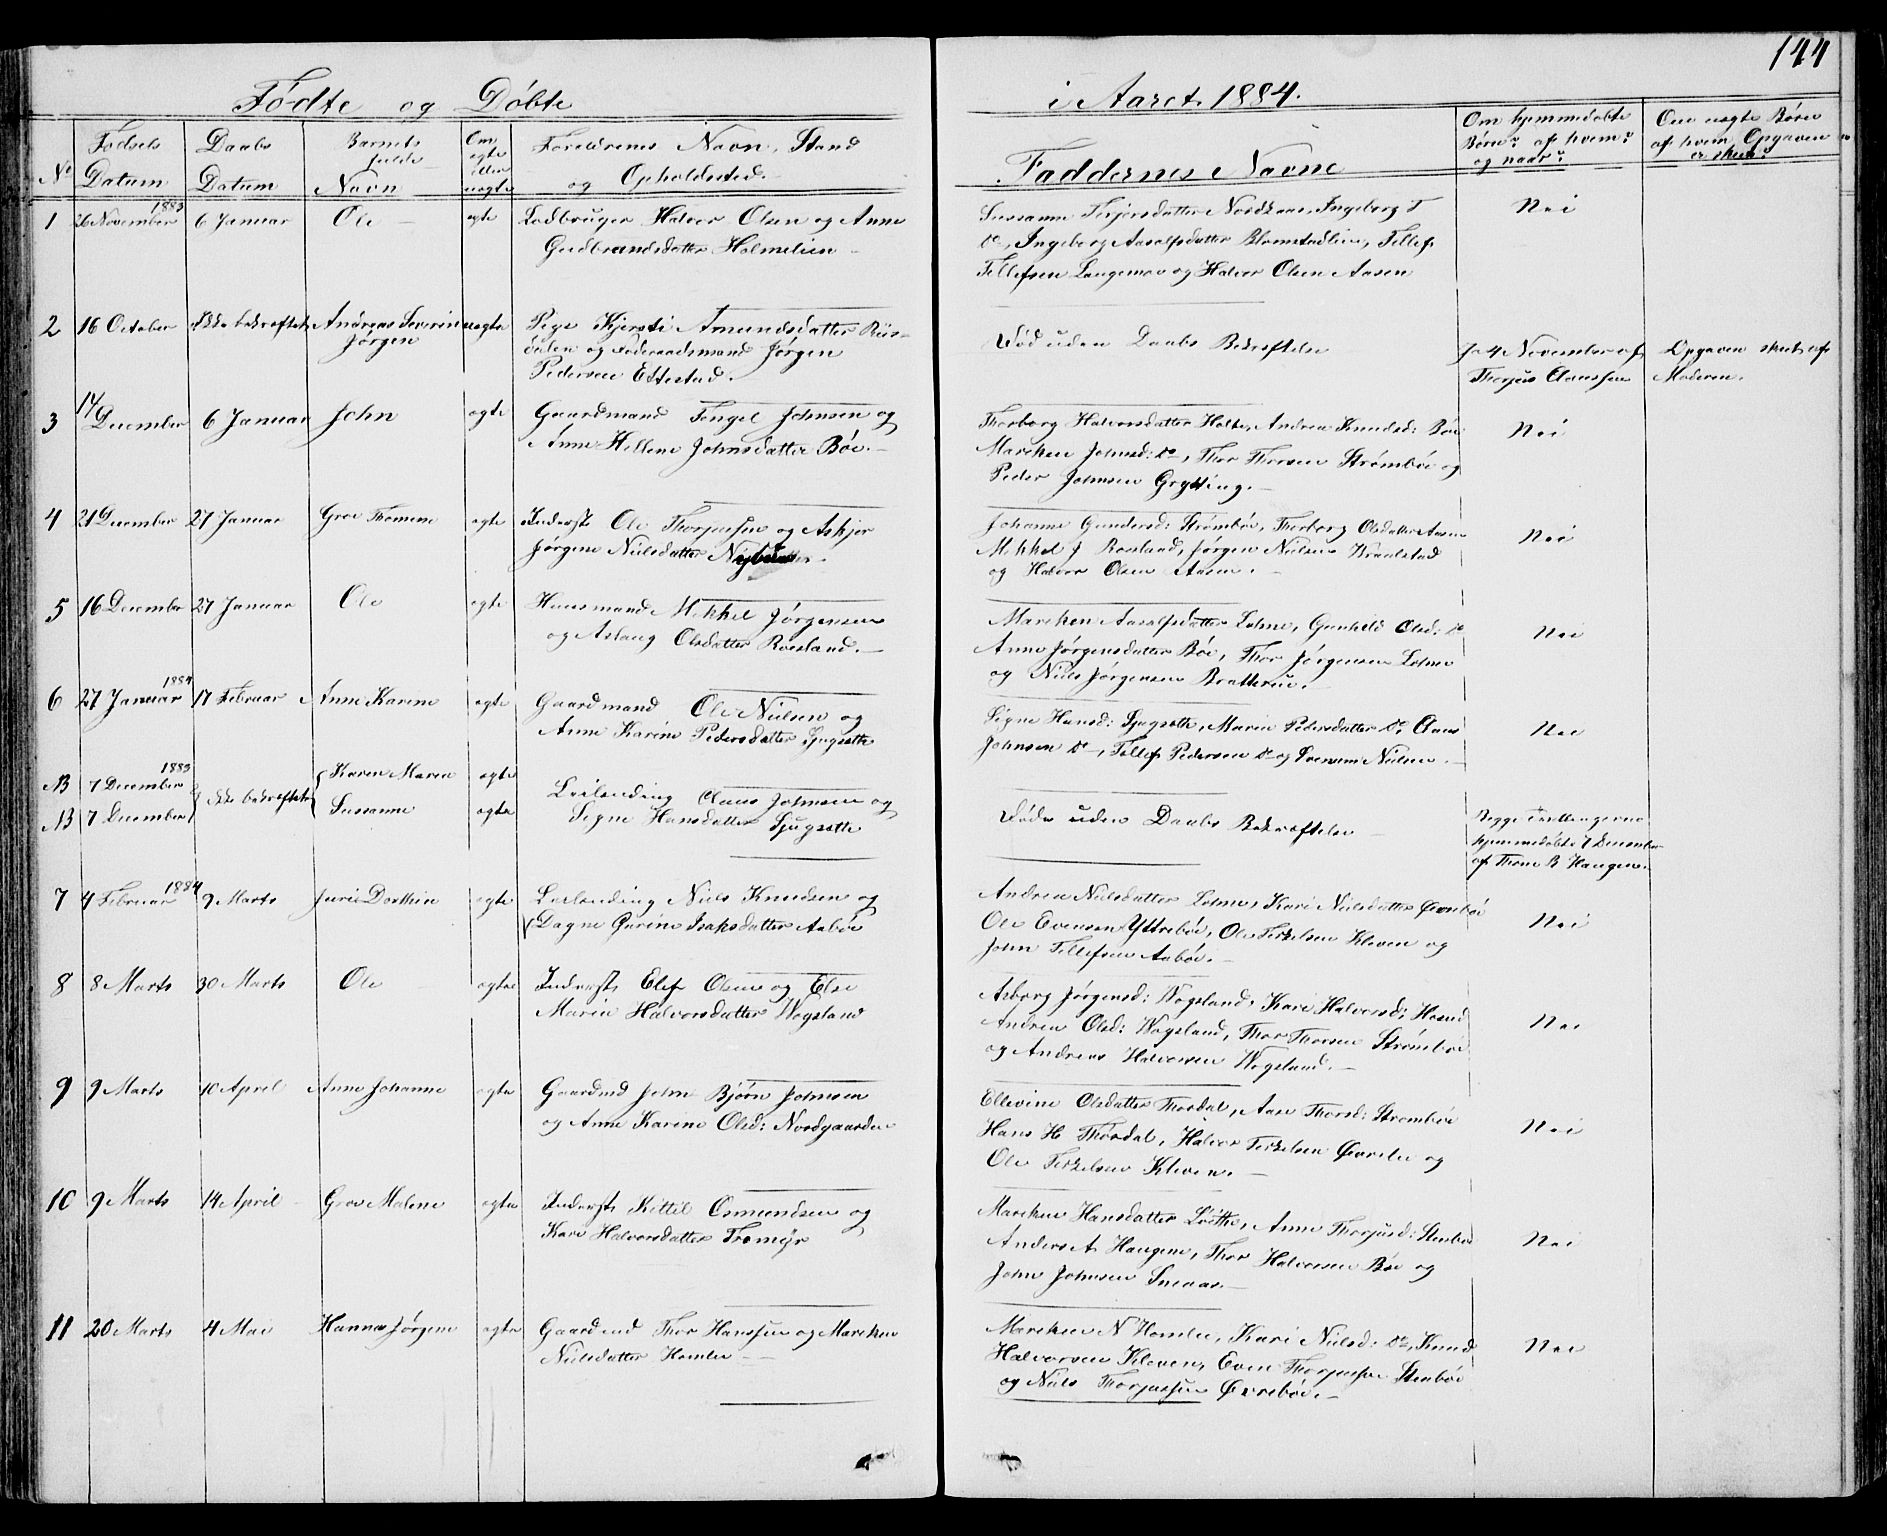 144
Fødte og Døbte
i Aaret 1884.
No
Fødsels Datum
Daabs Datum
Barnets fulde Navn
Om ægte eller uægte
Forældrenes Navn, Stand og Opholdssted.
Faddernes Navne
Om hjemmedøbte Børn? af hvem? og naar?
Om uægte Børn af hvem Opgaven er skeet?
1 26 November 1883 6 Januar Ole ægte Halvor Olsen og Anne
Gudbrandsdatter Holmelien
Sussanne Terjersdatter Nordkaas, Ingeborg T
do, Ingeborg Aasolfsdatter Blomstadlien, Tellef
Tellefsen Langemov og Halvor Olsen Aasen
Nei
2 16 October Ikke bekræftet Andreas Severin Jørgen uægte Pige Kjersti Amundsdatter Riis-
dalen og Føderaadsmand Jørgen
Pedersen Ettestad.
Død uden Daabs Bekræftelse
4 November af
Thorjus Claussen
Opgaven skeet af
Moderen.
3 14 December 6 Januar John ægte Gaardmand Tengel Johnsen og
Anne Hellene Johnsdatter Bøe.
Thorborg Halvorsdatter Holte, Andrea Knudsd: Bøe
Mareken Johnsd: do, Thor Thorsen Strømbøe og
Peder Johnsen Grytting.
Nei
4 21 December 27 Januar Groe Thomine ægte Inderst Ole Thorjussen og Askjer
Jørgine Nielsdatter
Johanne Gundersd: Strømbøe, Thorborg Olsdatter Aasen
Mikkel J Roesland, Jørgen Nielsen
og Halvor Olsen Aasen.
Nei
5 16 December 27 Januar Ole ægte Huusmand Mikkel Jørgensen
og Aslaug Olsdatter Roesland.
Mareken Aasolfsdatter Lohne, Gunhild Olsd: do
Anne Jørgensdatter Bøe, Thor Jørgensen Lohne
og Niels Jørgensen Bratterud.
Nei
6 27 Januar 1884 17 Februar Anne Karine ægte Gaardmand Ole Nielsen og
Anne Karine Pedersdatter Gjugsøtte
Signe Hansd: Gjugsøtte, Maria Pedersdatter do, Claus
Johnsen do, Tellef Pedersen do og Nielsen.
Nei
NB 7 December 1883 Karen Maren ægte
NB 7 December Ikke bekræftet Sussanne ægte
Leilænding Claus Johnsen og
Signe Hansdatter Gjugsøtte
Døde uden Daabs Bekræftelse
Begge Tvillingerne
hjemmedøbt 7 December
af Thone B Haugen.
7 4 Februar 1884 9 Marts Juri Dorthin ægte Leilænding Niels Knudsen og
Dagne Gurine Isaksdatter Aabøe
Andrea Nielsdatter Lohne, Kari Nielsdatter Øvrebøe
Ole Evensen Yttrebøe, Ole Terkelsen Kleven og
John Tellefsen Aabøe.
Nei
8 8 Marts 30 Marts Ole ægte Inderst Elef Olsen og Else
Maria Halvorsdatter Wogsland
Asborg Jørgensd: Wogsland, Kari Halvorsd:
Andrea Olsd: Wogsland, Thor Thorsen Strømbøe
og Andreas Halvorsen Wogsland.
Nei
9 9 Marts 10 April Anne Johanne ægte Gaardmd John Bjørn Johnsen
og Anne Karine Olsd: Nordgaarden
Ellevine Olsdatter Thordal, Aase Thorsd: Strømbøe
Hans H Thordal, Halvor Terkelsen Øvrelie og
Ole Terkelsen Kleven.
Nei
10 9 Marts 14 April Groe Malene ægte Inderst Kittil Osmundsen og
Kari Halvorsdatter Tromyr
Mareken Hansdatter Løithe, Anne Thorjusd: Stenbøe
Anders A Haugene, Thor Halvorsen Bøe og
John Johnsen Snæaas.
Nei
11 20 Marts 4 Mai Hanna Jørgine ægte Gaardmd Thor Hanssen og Mareken
Nielsdatter Homlie
Mareken N Homlie, Kari Nielsd: do, Knud
Halvorsen Kleven, Even Thorjussen Stenbøe
og Niels Thorjussen Øvrebøe.
Nei